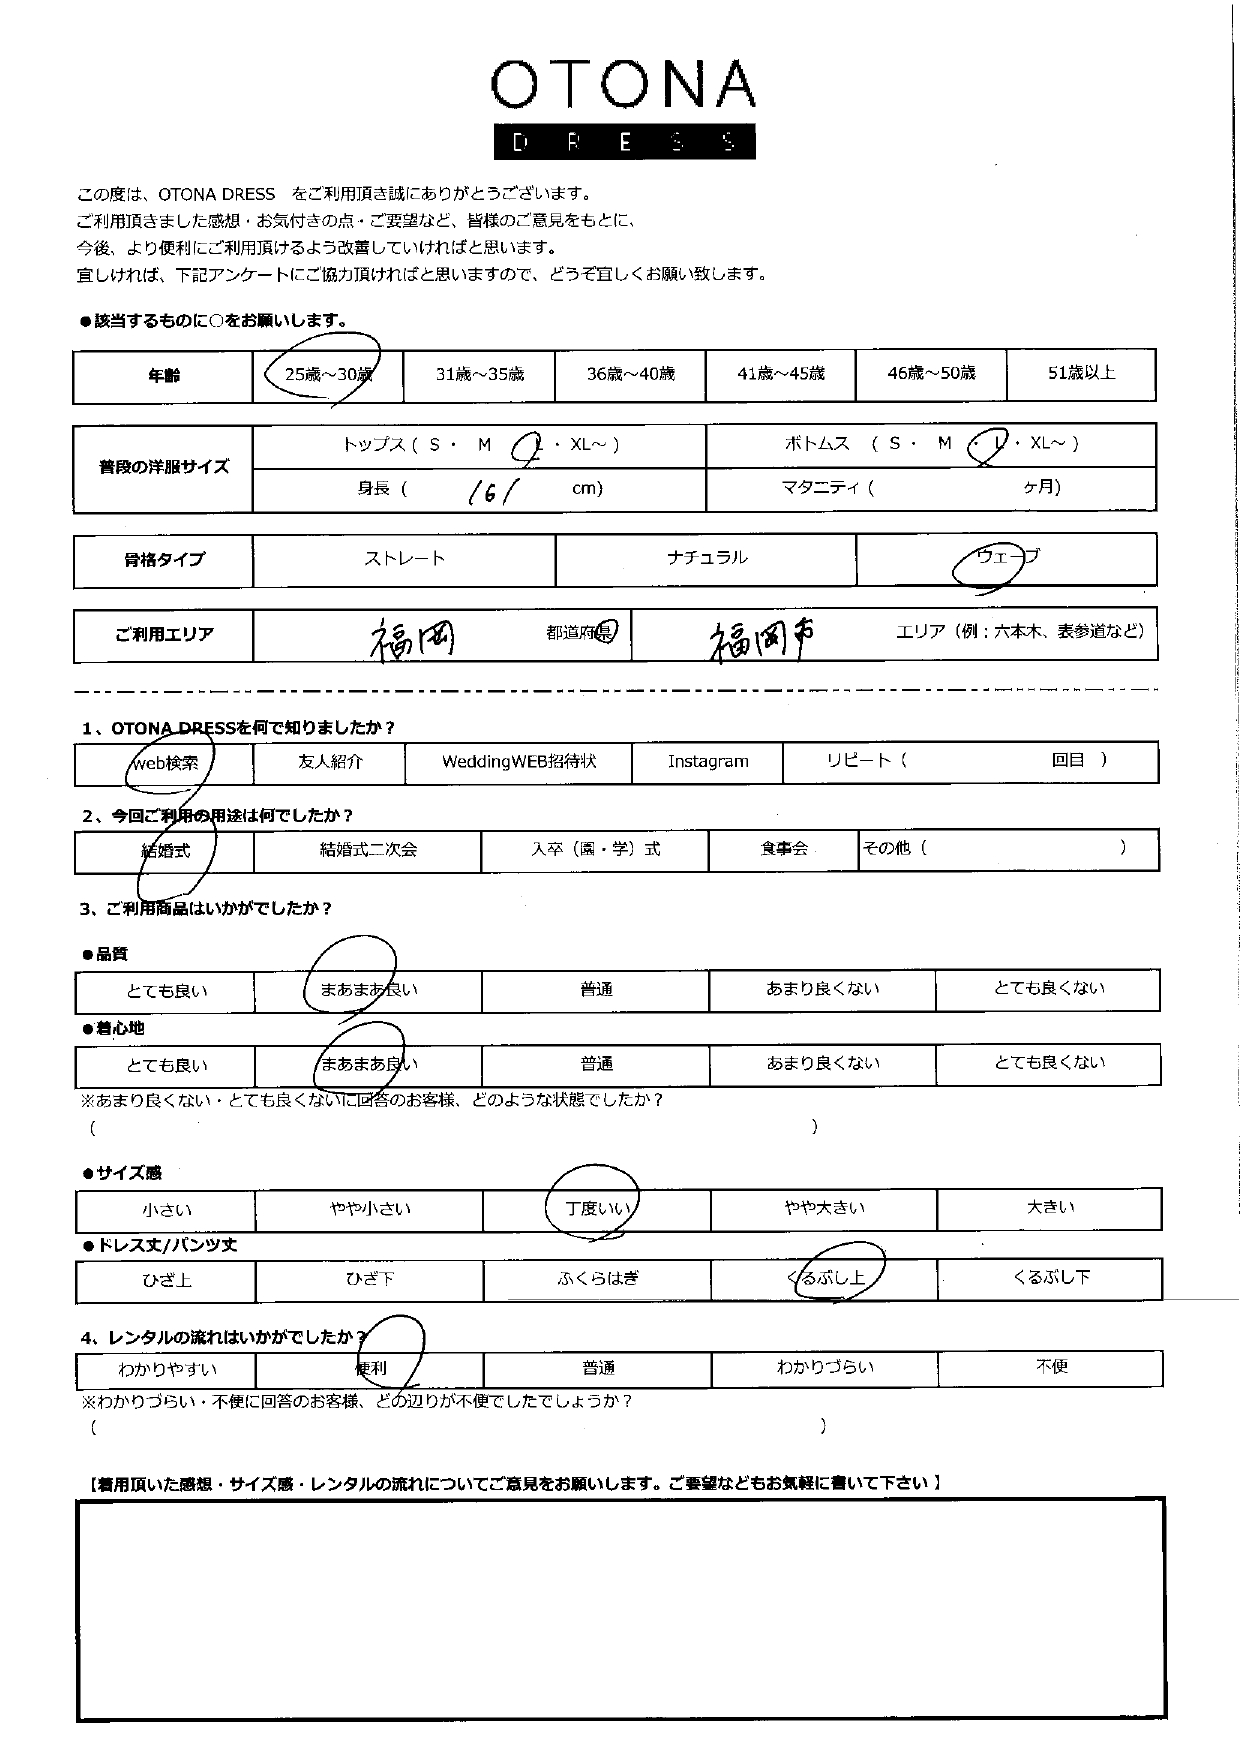 OTONA
DRESS
この度は、OTONA DRESS　をご利用頂き誠にありがとうございます。
ご利用頂きました感想・お気付きの点・ご要望など、皆様のご意見をもとに、
今後、より便利にご利用頂けるよう改善していければと思います。
宜しければ、下記アンケートにご協力頂ければと思いますので、どうぞ宜しくお願い致します。
●該当するものに○をお願いします。
年齢 25歳～30歳 31歳～35歳 36歳～40歳 41歳～45歳 46歳～50歳 51歳以上
普段の洋服サイズ トップス ( S ・ M ・ L ・ XL～ ) ボトムス ( S ・ M ・ L ・ XL～ )
身長 ( 161 cm) マタニティ ( ヶ月)
骨格タイプ ストレート ナチュラル ウェーブ
ご利用エリア 福岡 都道府県 福岡市 エリア（例：六本木、表参道など）
1、OTONA DRESSを何で知りましたか？
web検索 友人紹介 WeddingWEB招待状 Instagram リピート（ 回目 ）
2、今回ご利用の用途は何でしたか？
結婚式 結婚式二次会 入卒（園・学）式 食事会 その他（ ）
3、ご利用商品はいかがでしたか？
●品質
とても良い まあまあ良い 普通 あまり良くない とても良くない
●着心地
とても良い まあまあ良い 普通 あまり良くない とても良くない
※あまり良くない・とても良くないに回答のお客様、どのような状態でしたか？
（ ）
●サイズ感
小さい やや小さい 丁度いい やや大きい 大きい
●ドレス丈/パンツ丈
ひざ上 ひざ下 ふくらはぎ くるぶし上 くるぶし下
4、レンタルの流れはいかがでしたか？
わかりやすい 便利 普通 わかりづらい 不便
※わかりづらい・不便に回答のお客様、どの辺りが不便でしたでしょうか？
（ ）
【着用頂いた感想・サイズ感・レンタルの流れについてご意見をお願いします。ご要望などもお気軽に書いて下さい 】